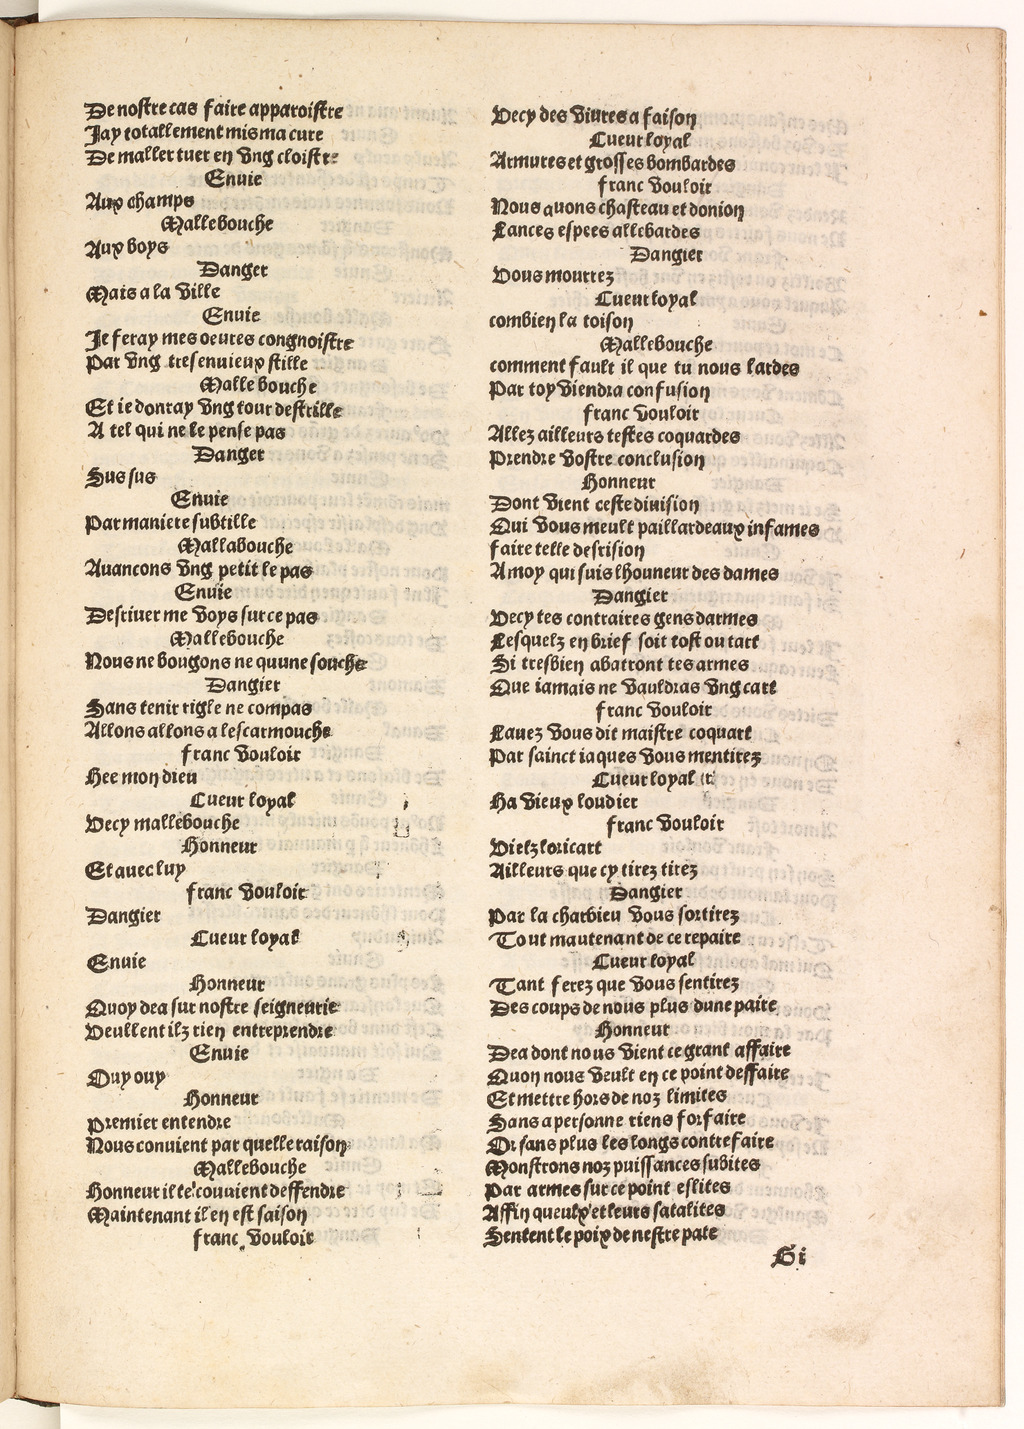 De nostre cas faire apparoistre
Jay totallement mis ma cure
De maller tuer en vng cloistre
Enuie
Aux champs
Mallebouche
Aux boys
Danger
Mais a la ville
Enuie
Je feray mes oeures congnoistre
Par vng tresenuieux stille
Malle bouche
Et ie donray vng tour destrille
A tel qui ne le pense pas
Danger
Sus sus
Enuie
Par maniere subtille
Mallabouche
Auancons vng petit le pas
Enuie
Destiuer me voys sur ce pas
Mallebouche
Nous ne bougons ne quune souche
Dangier
Sans tenir rigle ne compas
Allons allons a lescarmouche
franc vouloir
Hee mon dieu
Cueur loyal
Vecy mallebouche
Honneur
Et auec luy
franc vouloir
Dangier
Cueur loyal
Enuie
Honneur
Quoy dea sur nostre seigneurie
Veullent ilz rien entreprendre
Enuie
Ouy ouy
Honneur
premier entendre
Nous conuient par quelle raison
Mallebouche
Honneur il te couuient deffendre
Maintenant il en est saison
franc vouloir
Vecy des viures a faison
Cueur loyal
Armures et grosses bombardes
franc vouloir
Nous auons chasteau et donion
Lances espees allebardes
Dangier
Vous mourrez
Cueur loyal
combien la toison
Mallebouche
comment fault il que tu nous lardes
Par toy viendra confusion
franc vouloir
Allez ailleurs testes coquardes
Prendre vostre conclusion
Honneur
Dont vient ceste diuision
Qui vous meult paillardeaux infames
faire telle desrision
A moy qui suis lhouneur des dames
Dangier
Vecy tes contraires gens darmes
Lesquelz en brief soit tost ou tart
Si tresbien abatront tes armes
Que iamais ne vauldras vng cart
franc vouloir
Lauez vous dit maistre coquart
Par sainct iaques vous mentirez
Cueur loyal
Ha vieux loudier
franc vouloir
Vielz loricart
Ailleurs que cy tirez tirez
Dangier
Par la charbieu vous sortirez
Tout mautenant de ce repaire
Cueur loyal
Tant ferez que vous sentirez
Des coups de nous plus dune paire
Honneur
Dea dont nous vient ce grant affaire
Quon nous veult en ce point deffaire
Et mettre hors de noz limites
Sans a personne riens forfaire
Or sans plus les longs contrefaire
Monstrons noz puissances subites
Par armes sur ce point eslites
Affin queulx et leurs satalites
Sentent le poix de nestre pate
G i